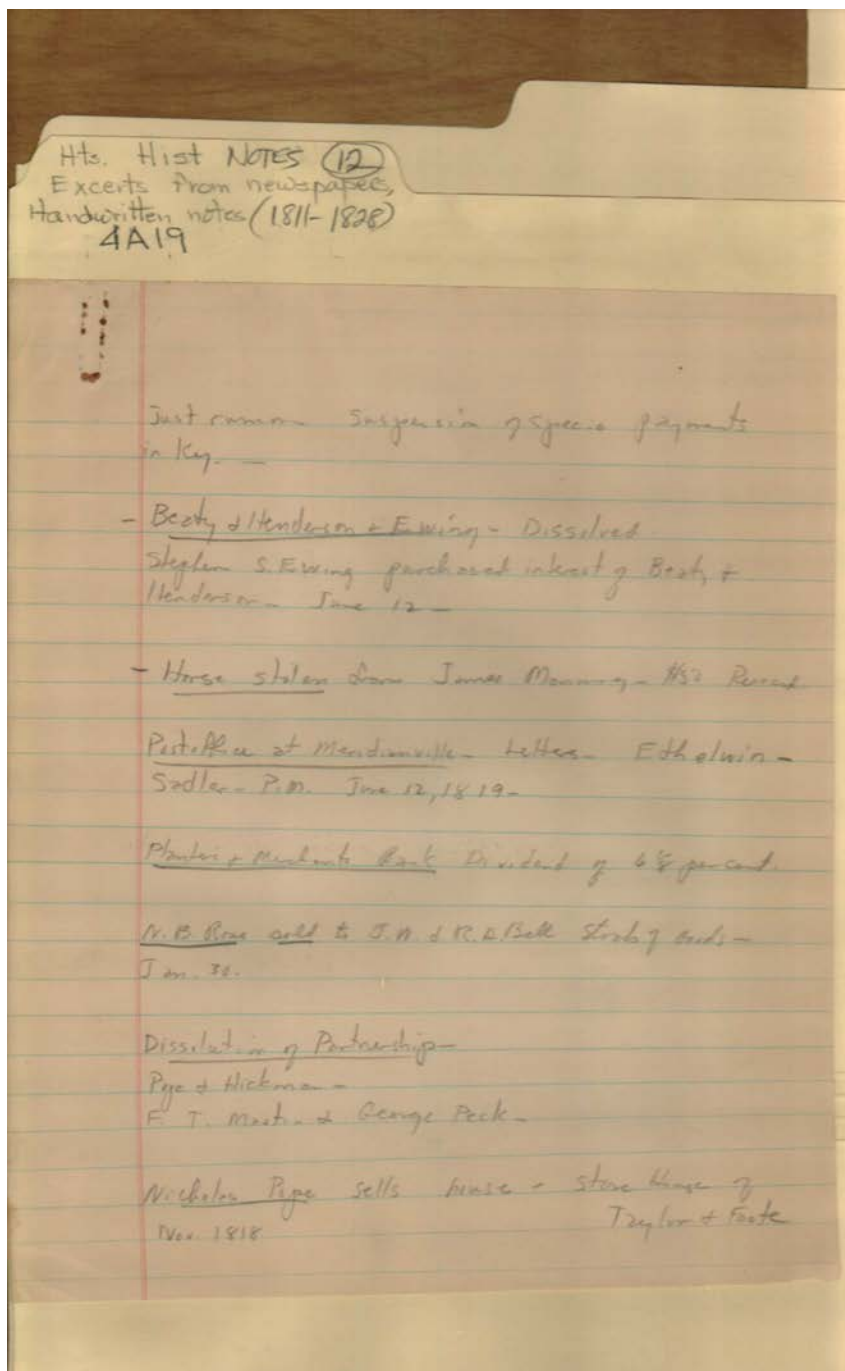 Hts. Hist NOTES (12)
Excerts from newspapers,
Handwritten notes (1811-1828)
4A19
Just Suspension of specie payments
in Key.
- Beaty & Henderson & Ewing - Dissolved
Stephen S. Ewing purchased interest of Beaty &
Henderson - June 12 -
- Horse stolen from James Manning - $50 Reward
Post Office at Meridianville - Letters - Ethelwin -
Sadler - P.M. June 12, 1819 -
Planters & Merchants Bank Dividend of 6 per cent.
N. B. Rose sold to J. W. & R. D. Bell Stock of Goods -
Jan. 30.
Dissolution of Partnership -
& Hickman -
F. T. Mastin & George Peck -
Nicholas Pope sells house - store House of
Taylor & Foote
Nov. 1818